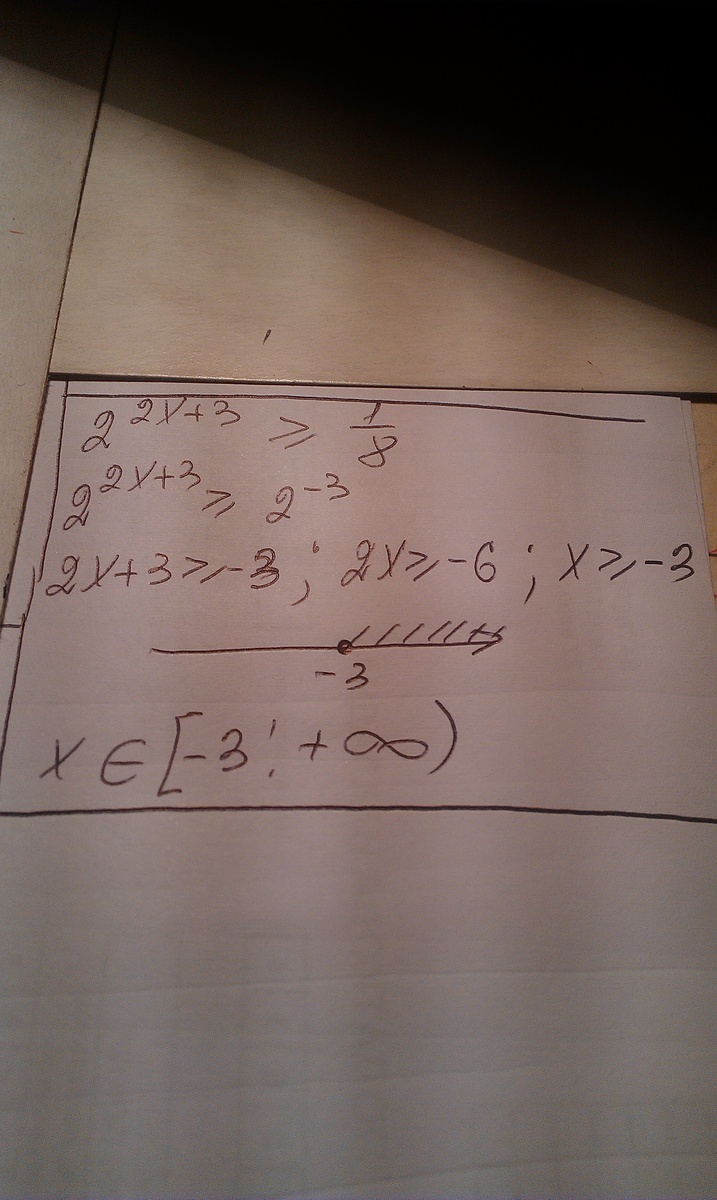 2^{2x+3} ≥ 1/8
2^{2x+3} ≥ 2^{-3}
2x+3 ≥ -3 ; 2x ≥ -6 ; x ≥ -3
-3
x ∈ [-3; +∞)